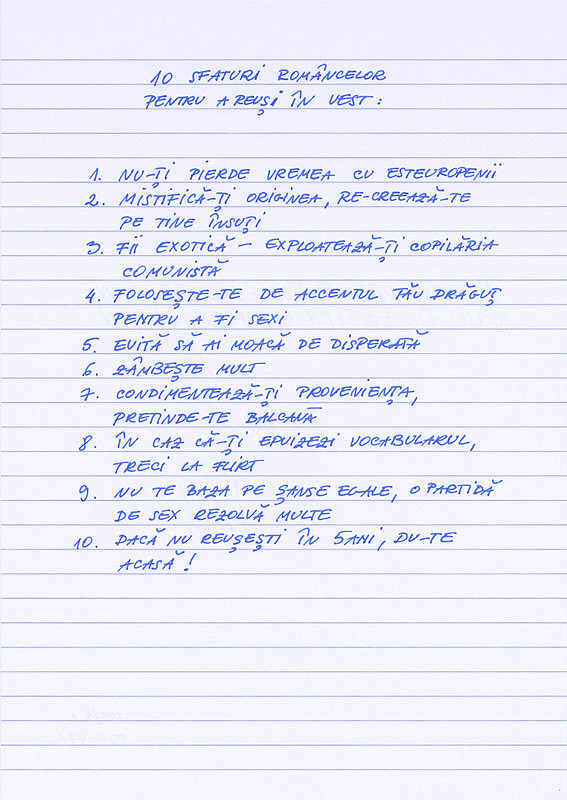 10 SFATURI ROMÂNCELOR
PENTRU A REUȘI ÎN VEST:
1. NU-ȚI PIERDE VREMEA CU ESTEUROPENII
2. MISTIFICĂ-ȚI ORIGINEA, RE-CREEAZĂ-TE
PE TINE ÎNSUȚI
3. FII EXOTICĂ – EXPLOATEAZĂ-ȚI COPILĂRIA
COMUNISTĂ
4. FOLOSEȘTE-TE DE ACCENTUL TĂU DRĂGUȚ
PENTRU A FI SEXI
5. EVITĂ SĂ AI MOACĂ DE DISPERATĂ
6. ZÂMBEȘTE MULT
7. CONDIMENTEAZĂ-ȚI PROVENIENȚA,
PRETINDE-TE BALCANĂ
8. ÎN CAZ CĂ-ȚI EPUIZEZI VOCABULARUL,
TRECI LA FLIRT
9. NU TE BAZA PE ȘANSE EGALE, O PARTIDĂ
DE SEX REZOLVĂ MULTE
10. DACĂ NU REUȘEȘTI ÎN 5 ANI, DU-TE
ACASĂ!